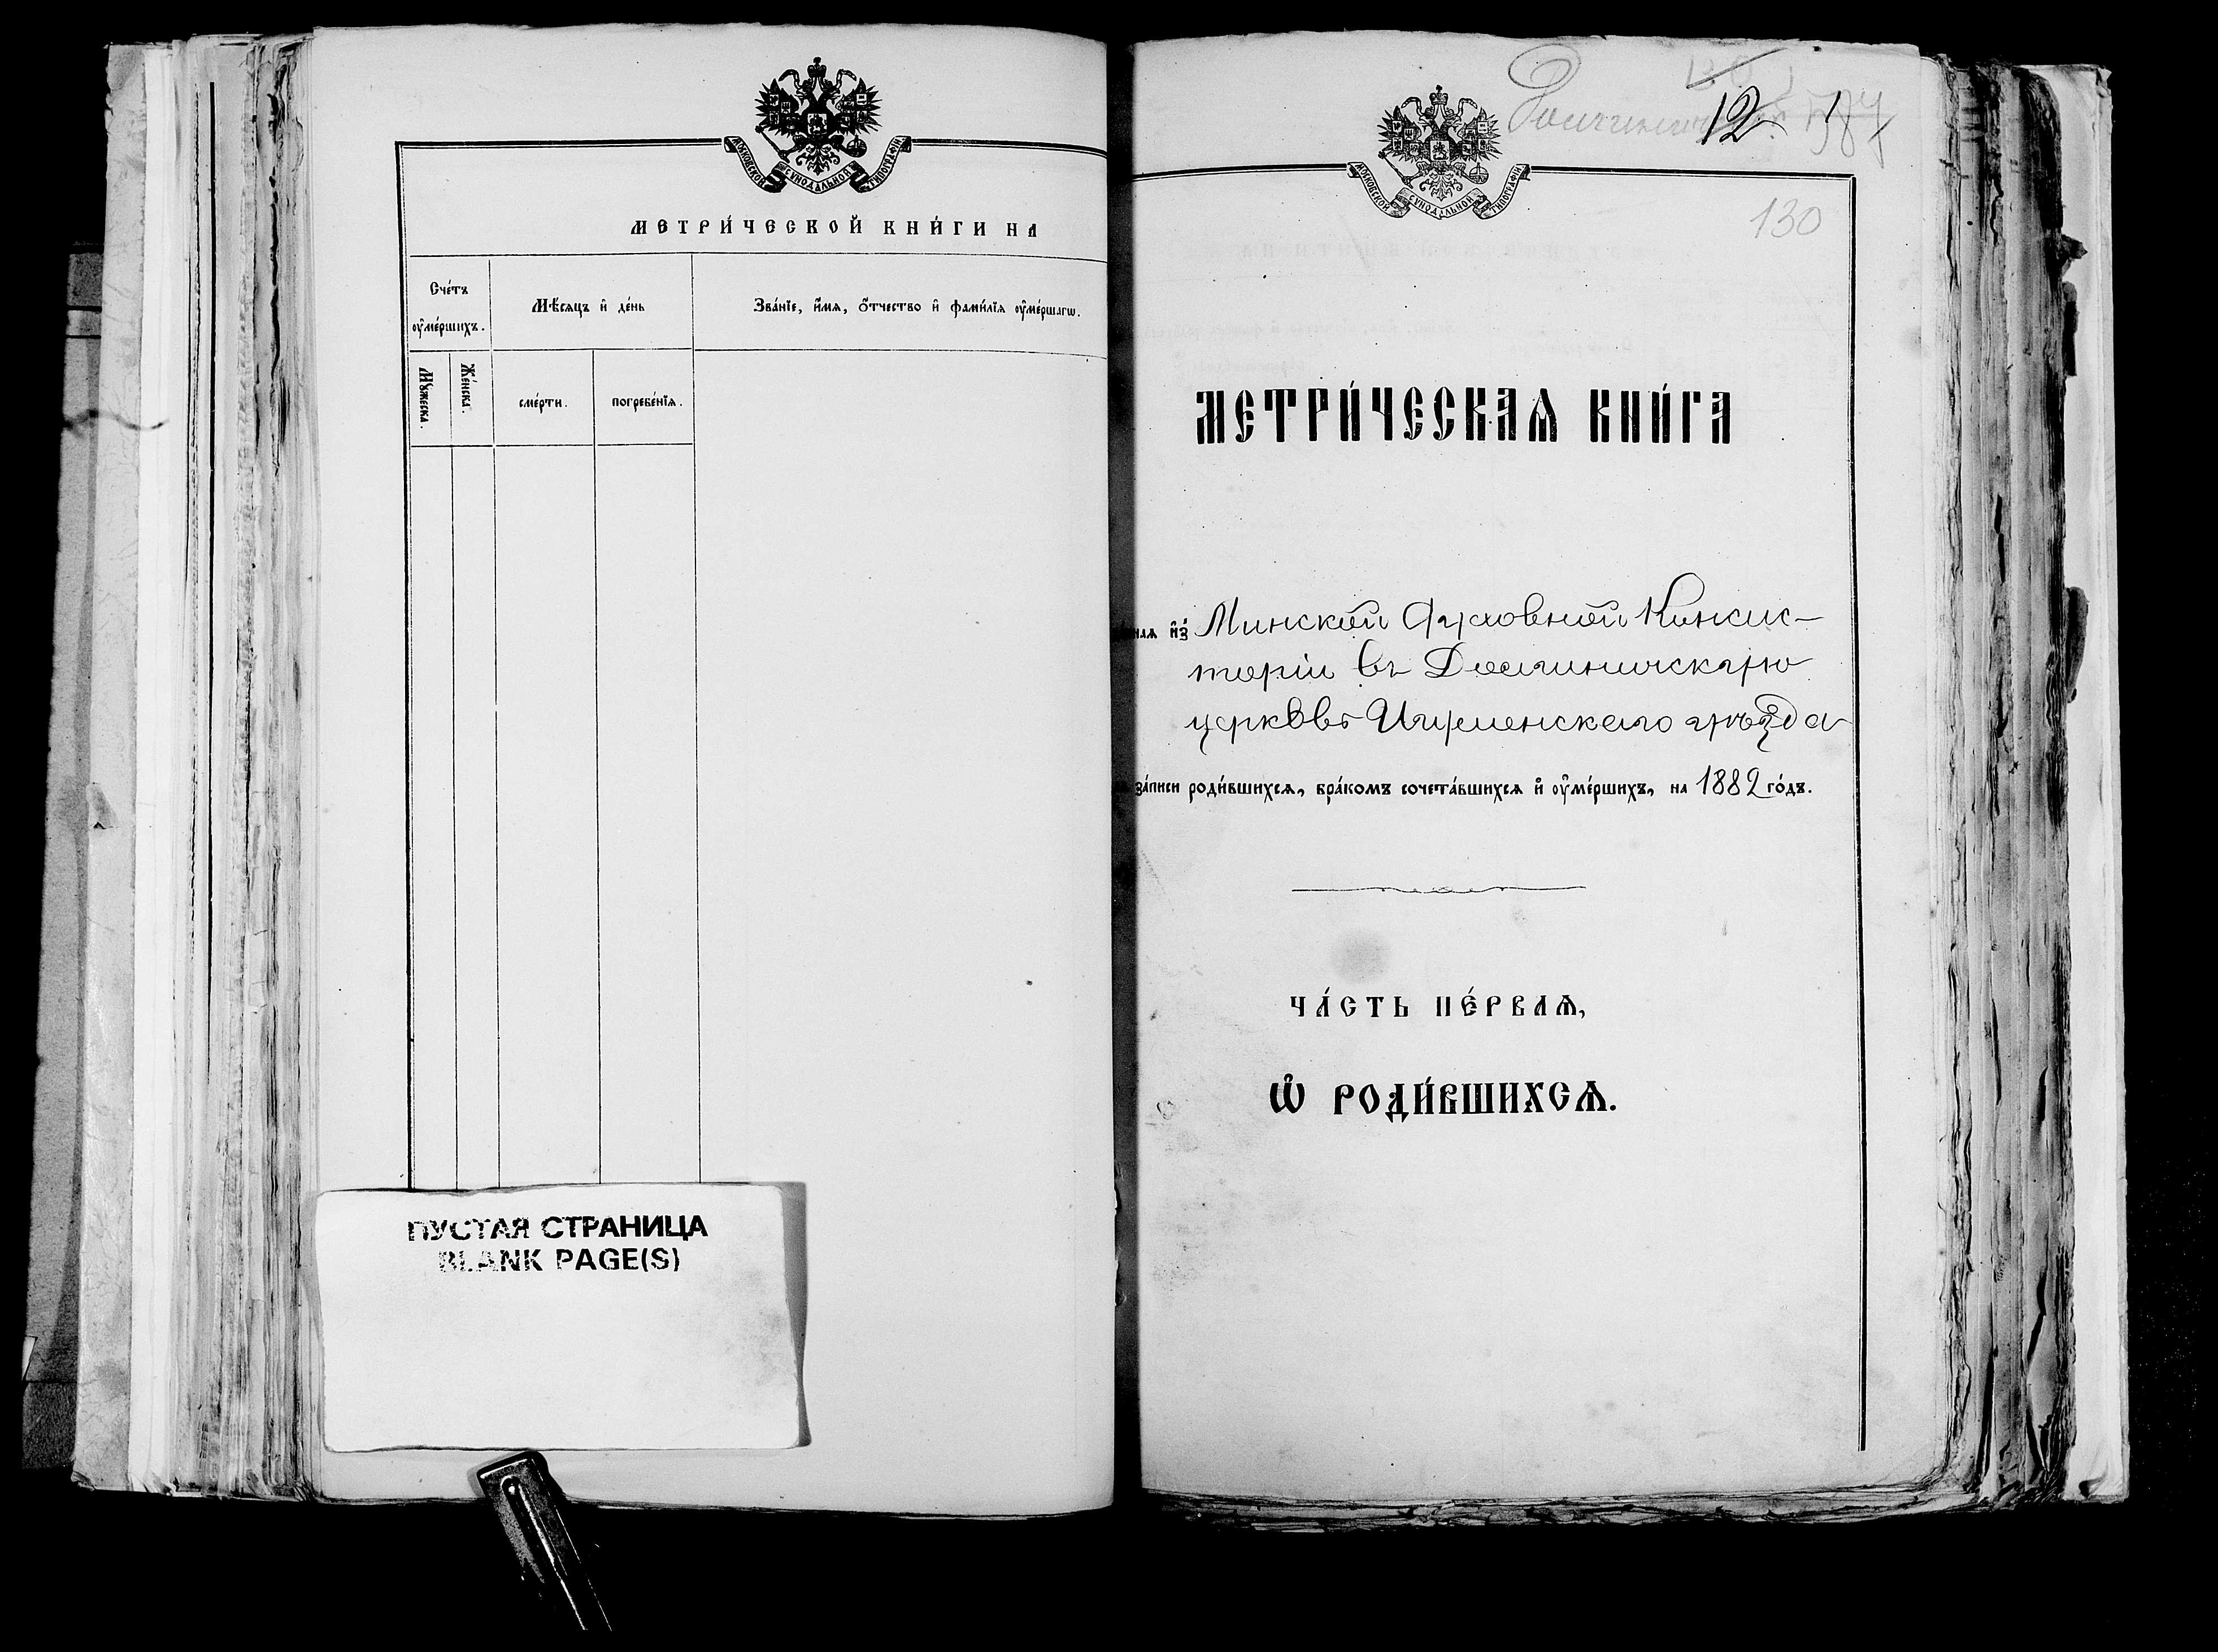 МОСКОВСКОЙ СѴНОДАЛЬНОЙ ТИПОГРАФІИ
МЕТРИ́ЧЕСКОЙ КНИ́ГИ НА
Сче́тъ ᲂу҆ме́ршихъ.
Мѣ́сяцъ и҆ де́нь
Зва́нїе, и҆́мѧ, ѻ҆́тчество и҆ фами́лїѧ ᲂу҆ме́ршагѡ.
Мꙋ́жеска.
Же́нска.
сме́рти.
погребе́нїѧ.
ПУСТАЯ СТРАНИЦА
BLANK PAGE(S)
12
130
МОСКОВСКОЙ СѴНОДАЛЬНОЙ ТИПОГРАФІИ
МЕТРИ́ЧЕСКАѦ КНИ́ГА
и҆з̾ Минской Духовной Консис-
торіи въ
церковь Игуменскаго уѣзда
за́писи роди́вшихсѧ, бра́комъ сочета́вшихсѧ и҆ ᲂу҆ме́ршихъ, на 1882 го́дъ.
ЧА́СТЬ ПЕ́РВАѦ,
Ѡ҆ РОДИ́ВШИХСѦ.